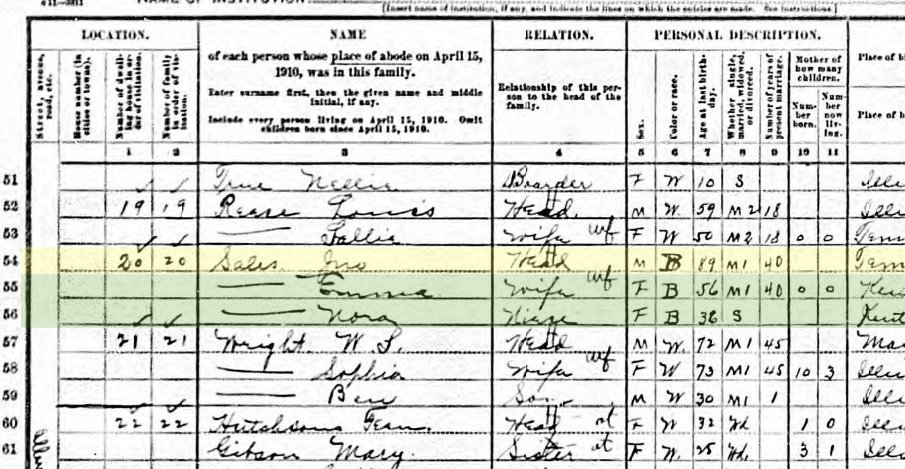 NAME OF INSTITUTION
[Insert name of institution, if any, and indicate the lines on which the entries are made. See instructions.]
LOCATION.
NAME
of each person whose place of abode on April 15, 1910, was in this family.
Enter surname first, then the given name and middle initial, if any.
Include every person living on April 15, 1910. Omit children born since April 15, 1910.
RELATION.
Relationship of this person to the head of the family.
PERSONAL DESCRIPTION.
Street, avenue, road, etc.
House number (in cities or towns).
Number of dwelling house in order of visitation.
Number of family in order of visitation.
Sex.
Color or race.
Age at last birthday.
Whether single, married, widowed, or divorced.
Number of years of present marriage.
Mother of how many children.
Number born.
Number now living.
Place of
Place of
1 2 3 4 5 6 7 8 9 10 11
51 True Nellie Boarder F W 10 S
52 19 19 Rease Louis Head M W 59 M2 18
53 — Sallie Wife F W 50 M2 18 0 0
54 20 20 Sales Jno Head M B 89 M1 40
55 — Emma Wife F B 56 M1 40 0 0
56 — Nora Niece F B 36 S
57 21 21 Wright W S. Head M W 72 M1 45
58 — Sophia Wife F W 73 M1 45 10 3
59 — Ben Son M W 30 M1 1
60 22 22 Head F W 32 Wd 1 0
61 Gibson Mary Sister F W 25 Wd 3 1